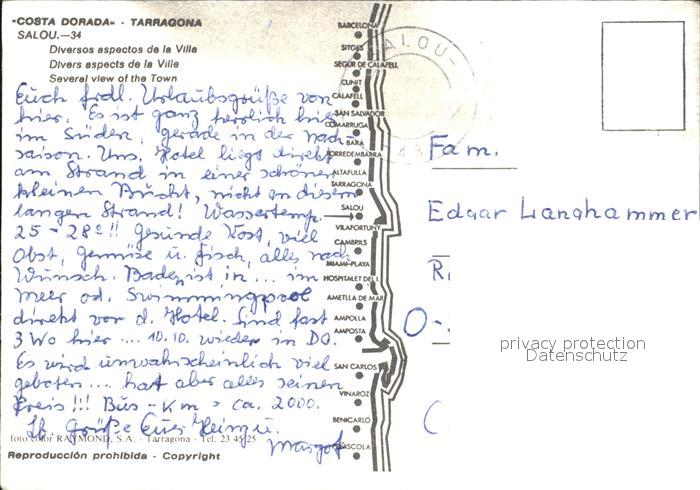 "COSTA DORADA" - TARRAGONA
SALOU.—34
Diversos aspectos de la Ville
Divers aspects de la Ville
Several view of the Town
Euch frdl. Urlaubsgrüße von
hier. Es ist ganz herrlich hier
im Süden, gerade in der Nach-
saison. Uns. Hotel liegt direkt
am Strand in einer schönen
kleinen Bucht, nicht an diesem
langen Strand! Wassertemp.
25 - 28°!! Gesunde Kost, viel
Obst, Gemüse u. Fisch, alles nach
Wunsch. Baden ist in ... im
Meer od. Swimmingpool
direkt vor d. Hotel. Sind fast
3 Wo hier .... 10.10. wieder in DO.
Es wird unwahrscheinlich viel
geboten ... hat aber alles seinen
Preis!!! Bus-Km = ca. 2000.
Lb. Grüße Euer Heinz u.
Margot
foto color RAYMOND, S.A. - Tarragona - Tel. 23 45 25
Reproducción prohibida - Copyright
BARCELONA
SITGES
SEGUR DE CALAFELL
CUNIT
CALAFELL
SAN SALVADOR
COMARRUGA
BARA
TORREDEMBARRA
ALTAFULLA
TARRAGONA
SALOU
VILAFORTUNY
CAMBRILS
MIAMI-PLAYA
HOSPITALET DEL I.
AMETLLA DE MAR
AMPOLLA
AMPOSTA
SAN CARLOS
VINAROZ
BENICARLO
PEÑISCOLA
SALOU
Fam.
Edgar Langhammer
R
O-
privacy protection
Datenschutz